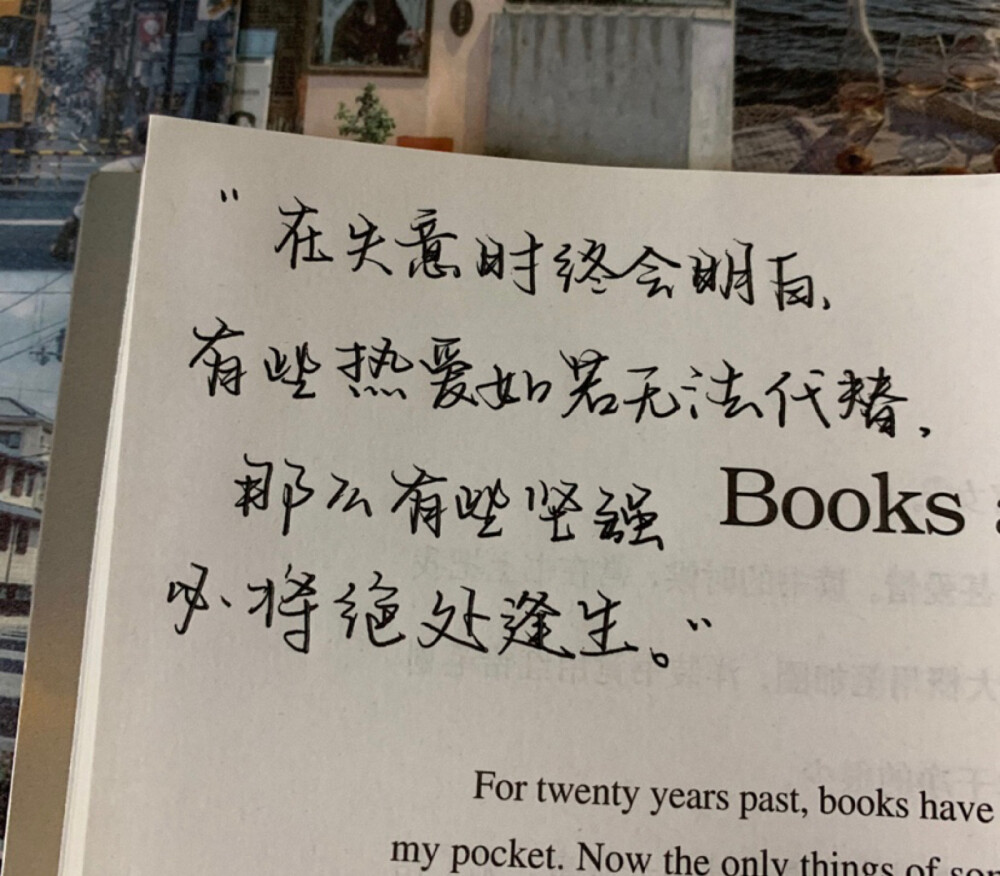 "在失意时终会明白,
有些热爱如若无法代替,
那么有些坚强
必将绝处逢生。"
Books
For twenty years past, books have
my pocket. Now the only things of